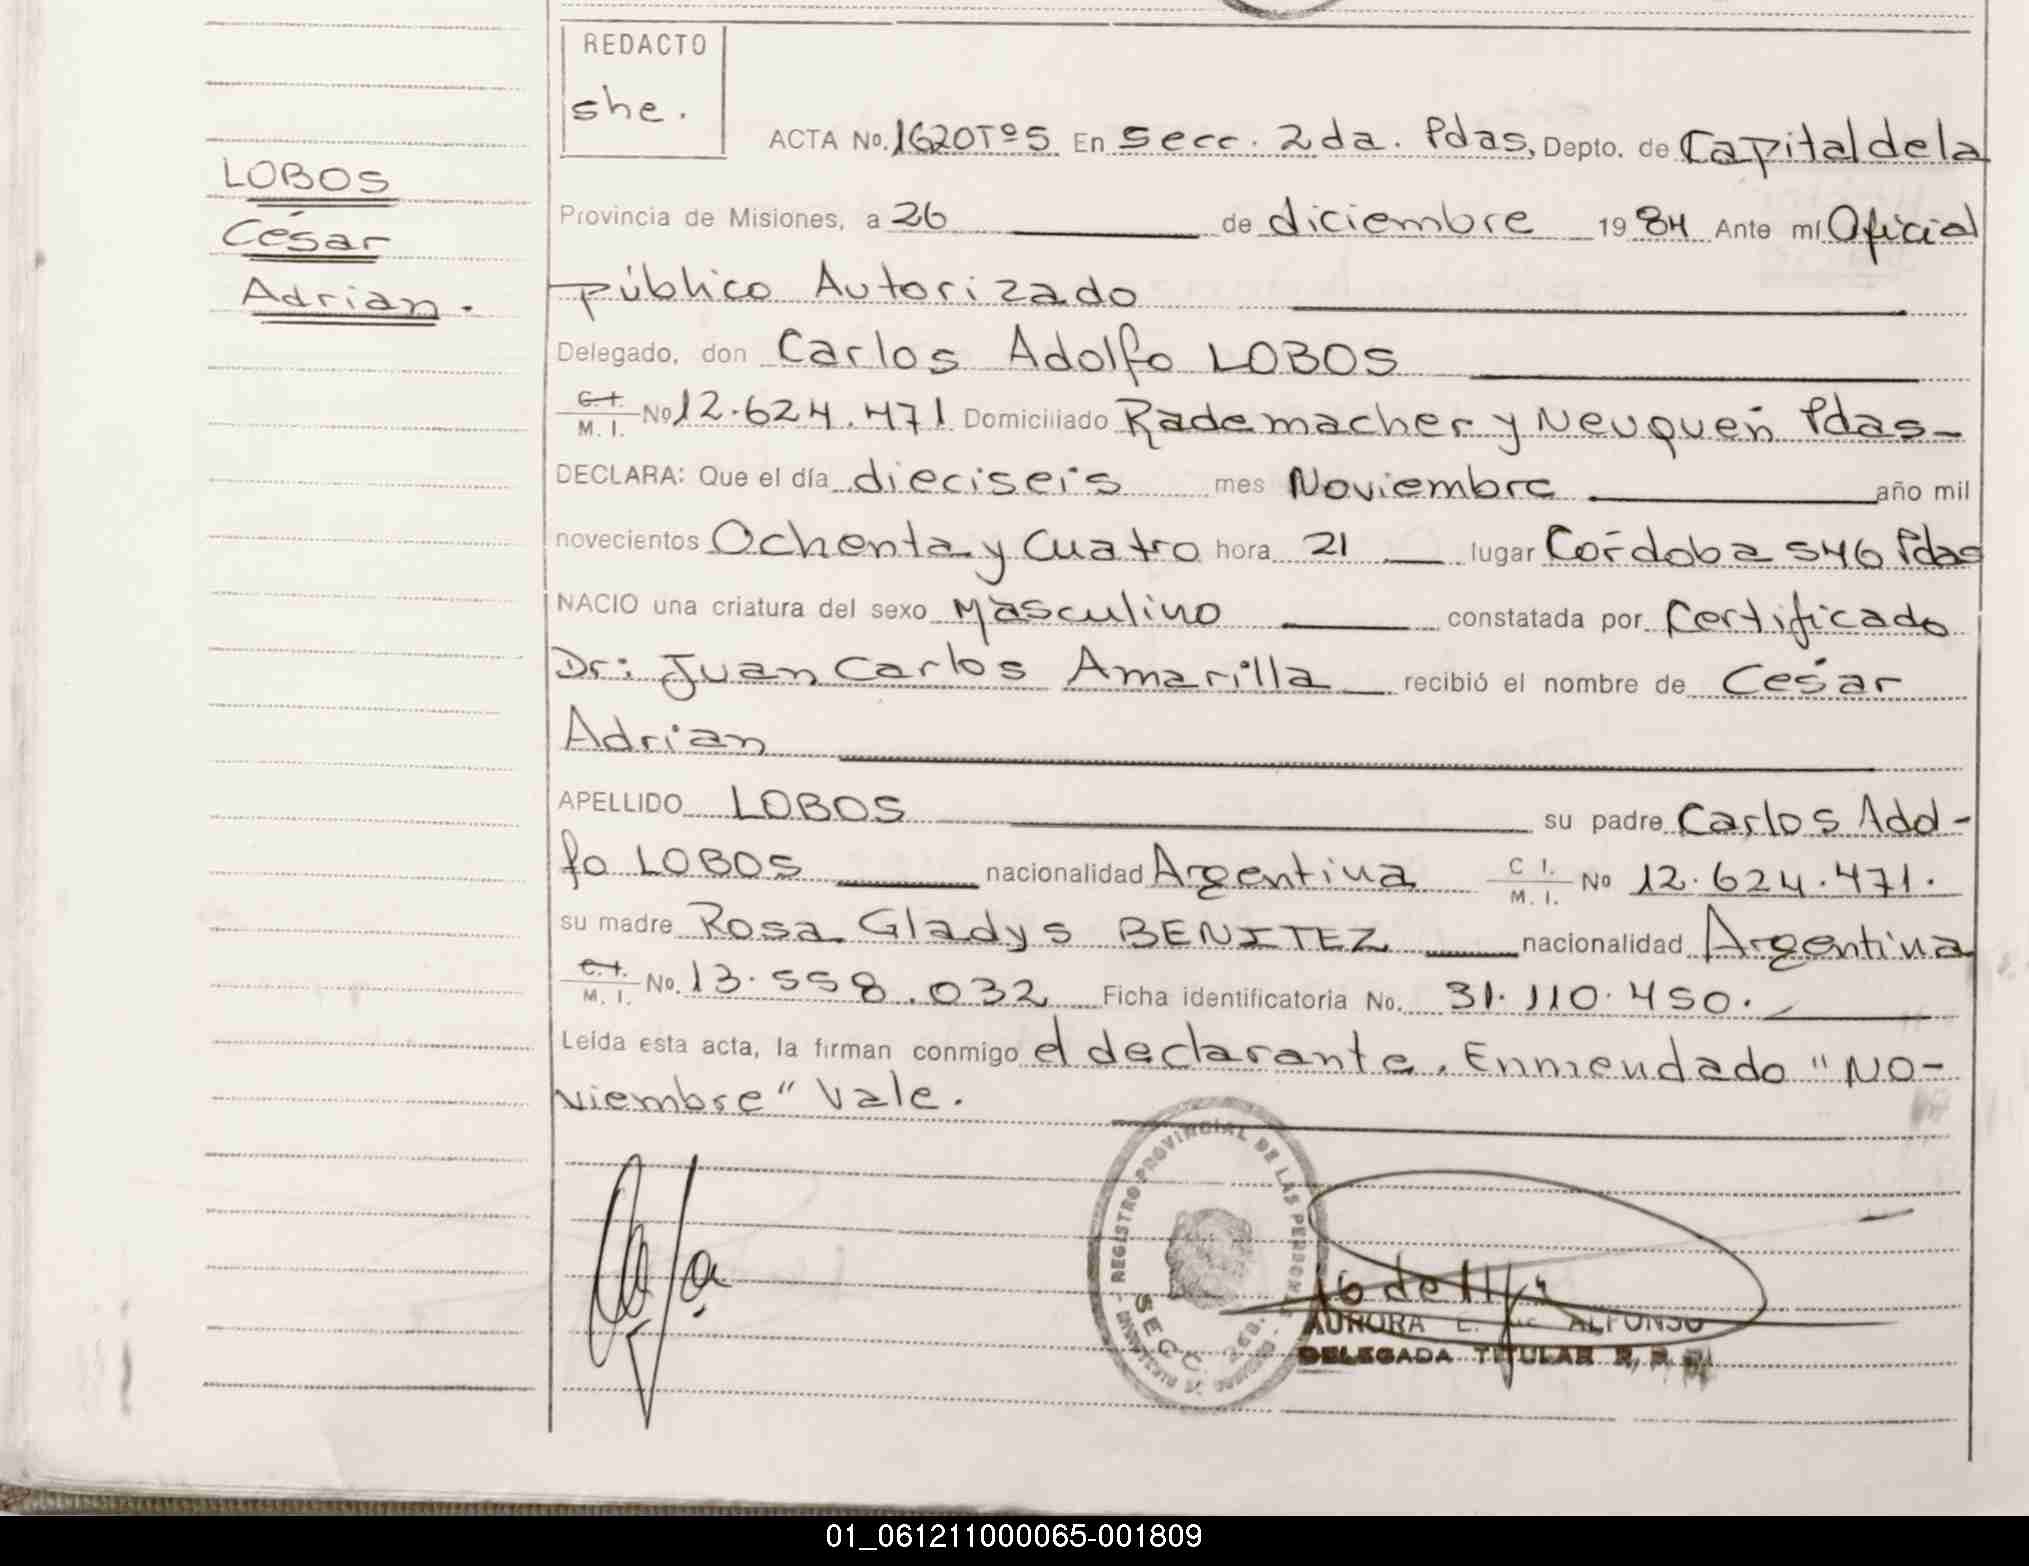 REDACTO
she.
ACTA No. 1620 Tº5 En Secc. 2da. Pdas, Depto. de Capital de la
LOBOS
César
Adrian.
Provincia de Misiones, a 26 de diciembre 1984 Ante mí Oficial
público Autorizado
Delegado, don Carlos Adolfo LOBOS
C.I. M. I. No 12.624.471 Domiciliado Rademacher y Neuquén Pdas-
DECLARA: Que el día dieciseis mes Noviembre año mil
novecientos Ochenta y Cuatro hora 21 lugar Córdoba 546 Pdas
NACIO una criatura del sexo Masculino constatada por Certificado
Dr: Juan Carlos Amarilla recibió el nombre de César
Adrian
APELLIDO LOBOS su padre Carlos Adol-
fo LOBOS nacionalidad Argentina C I. M. I. No 12.624.471.
su madre Rosa Gladys BENITEZ nacionalidad Argentina
C.I. M. I. No. 13.558.032 Ficha identificatoria No. 31.110.450.
Leída esta acta, la firman conmigo el declarante. Enmendado "No-
viembre" Vale.
REGISTRO PROVINCIAL DE LAS PERSONAS
SECC. 2da.
AURORA E. ALFONSO
DELEGADA TITULAR R. P.
01_061211000065-001809